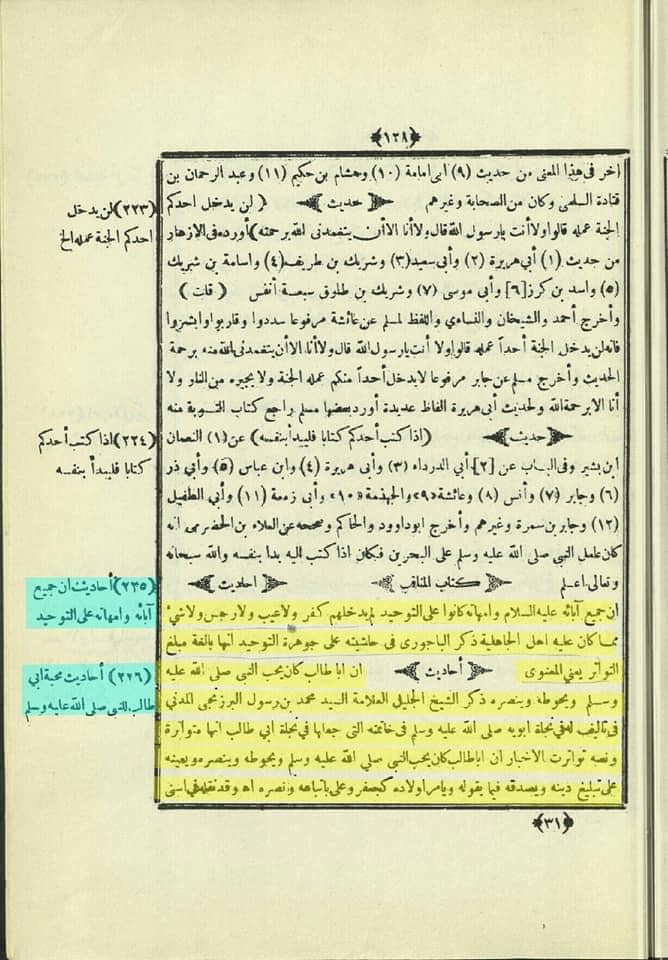 ﴿١٢٨﴾
اخر في هذا المعنى من حديث (٩) أبي امامة (١٠) وهشام بن حكيم (١١) وعبد الرحمان بن
قتادة السلمى وكان من الصحابة وغيرهم حديث (لن يدخل احدكم
الجنة عمله قالوا ولا أنت يارسول الله قال ولا أنا الا أن يتغمدنى الله برحمته) أورده في الازهار
من حديث (١) أبي هريرة (٢) وأبي سعيد (٣) وشريك بن طريف (٤) واسامة بن شريك
(٥) واسد بن كرز [٦] وأبي موسى (٧) وشريك بن طارق سبعة أنفس (قلت)
وأخرج أحمد والشيخان والنساءي واللفظ لمسلم عن عائشة مرفوعا سددوا وقاربوا وابشروا
فانه لن يدخل الجنة أحداً عمله قالوا ولا أنت يارسول الله قال ولا أنا الا أن يتغمدنى الله منه برحمة
الحديث وأخرج مسلم عن جابر مرفوعا لايدخل أحداً منكم عمله الجنة ولا يجيره من النار ولا
أنا الا برحمة الله ولحديث أبي هريرة الفاظ عديدة أورد بعضها مسلم راجع كتاب التوبة منه
حديث (اذا كتب أحدكم كتابا فليبدأ بنفسه) عن (١) النعمان
ابن بشير وفي الباب عن [٢] أبي الدرداء (٣) وأبي هريرة (٤) وابن عباس (٥) وأبي ذر
(٦) وجابر (٧) وأنس (٨) وعائشة «٩» والجهذمة «١٠» وأبى زمعة (١١) وأبي الطفيل
(١٢) وجابر بن سمرة وغيرهم وأخرج ابوداوود والحاكم وصححه عن العلاء بن الحضرمى انه
كان عامل النبي صلى الله عليه وسلم على البحرين فكان اذا كتب اليه بدا بنفسه والله سبحانه
وتعالى اعلم كتاب المناقب احاديث
ان جميع آبائه عليه السلام وامهاته كانوا على التوحيد لم يدخلهم كفر ولا عيب ولا رجس ولا شئ
مما كان عليه اهل الجاهلية ذكر الباجورى في حاشيته على جوهرة التوحيد انها بالغة مبلغ
التواتر يعني المعنوى أحاديث ان اباطالب كان يحب النبي صلى الله عليه
وسلم ويحوطه وينصره ذكر الشيخ الجليل العلامة السيد محمد بن رسول البرزنجى المدني
في تاليف له في نجاة ابويه صلى الله عليه وسلم في خاتمته التى جعلها في نجاة ابي طالب انها متواترة
ونصه تواترت الاخبار ان اباطالب كان يحب النبي صلى الله عليه وسلم ويحوطه وينصره ويعينه
على تبليغ دينه ويصدقه فيما يقوله ويامر اولاده كجعفر وعلى باتباعه ونصره اه وقد نقله في اسنى
﴿٣١﴾
(٢٢٣) لن يدخل
احدكم الجنة عمله الخ
(٢٢٤) اذا كتب أحدكم
كتابا فليبدأ بنفسه
(٢٢٥) أحاديث ان جميع
آبائه وامهاته على التوحيد
(٢٢٦) أحاديث محبة ابي
طالب للنبي صلى الله عليه وسلم